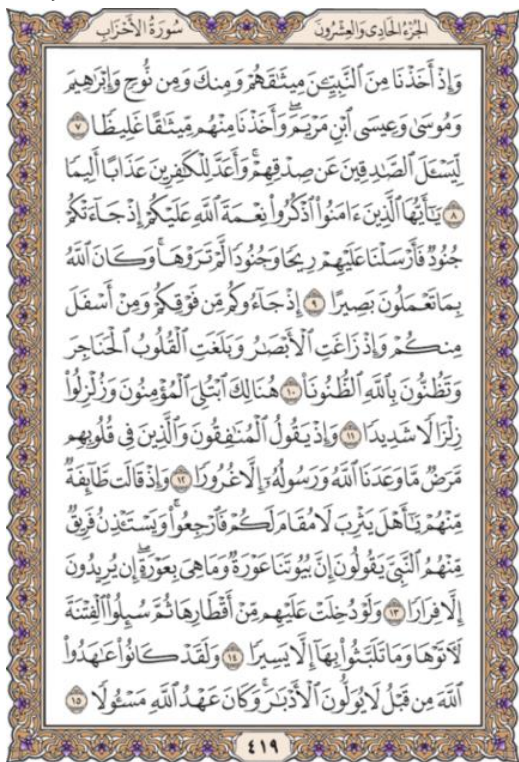 الجُزْءُ الحَادِى وَالعِشْرُونَ سُورَةُ الأَحْزَابِ
وَإِذْ أَخَذْنَا مِنَ ٱلنَّبِيِّـۧنَ مِيثَٰقَهُمْ وَمِنكَ وَمِن نُّوحٍ وَإِبْرَٰهِيمَ
وَمُوسَىٰ وَعِيسَى ٱبْنِ مَرْيَمَۖ وَأَخَذْنَا مِنْهُم مِّيثَٰقًا غَلِيظًا ٧
لِّيَسْـَٔلَ ٱلصَّٰدِقِينَ عَن صِدْقِهِمْۚ وَأَعَدَّ لِلْكَٰفِرِينَ عَذَابًا أَلِيمًا
٨ يَٰٓأَيُّهَا ٱلَّذِينَ ءَامَنُوا۟ ٱذْكُرُوا۟ نِعْمَةَ ٱللَّهِ عَلَيْكُمْ إِذْ جَآءَتْكُمْ
جُنُودٌ فَأَرْسَلْنَا عَلَيْهِمْ رِيحًا وَجُنُودًا لَّمْ تَرَوْهَاۚ وَكَانَ ٱللَّهُ
بِمَا تَعْمَلُونَ بَصِيرًا ٩ إِذْ جَآءُوكُم مِّن فَوْقِكُمْ وَمِنْ أَسْفَلَ
مِنكُمْ وَإِذْ زَاغَتِ ٱلْأَبْصَٰرُ وَبَلَغَتِ ٱلْقُلُوبُ ٱلْحَنَاجِرَ
وَتَظُنُّونَ بِٱللَّهِ ٱلظُّنُونَا۠ ١٠ هُنَالِكَ ٱبْتُلِىَ ٱلْمُؤْمِنُونَ وَزُلْزِلُوا۟
زِلْزَالًا شَدِيدًا ١١ وَإِذْ يَقُولُ ٱلْمُنَٰفِقُونَ وَٱلَّذِينَ فِى قُلُوبِهِم
مَّرَضٌ مَّا وَعَدَنَا ٱللَّهُ وَرَسُولُهُۥٓ إِلَّا غُرُورًا ١٢ وَإِذْ قَالَت طَّآئِفَةٌ
مِّنْهُمْ يَٰٓأَهْلَ يَثْرِبَ لَا مُقَامَ لَكُمْ فَٱرْجِعُوا۟ۚ وَيَسْتَـْٔذِنُ فَرِيقٌ
مِّنْهُمُ ٱلنَّبِىَّ يَقُولُونَ إِنَّ بُيُوتَنَا عَوْرَةٌ وَمَا هِىَ بِعَوْرَةٍۖ إِن يُرِيدُونَ
إِلَّا فِرَارًا ١٣ وَلَوْ دُخِلَتْ عَلَيْهِم مِّنْ أَقْطَارِهَا ثُمَّ سُئِلُوا۟ ٱلْفِتْنَةَ
لَـَٔاتَوْهَا وَمَا تَلَبَّثُوا۟ بِهَآ إِلَّا يَسِيرًا ١٤ وَلَقَدْ كَانُوا۟ عَٰهَدُوا۟
ٱللَّهَ مِن قَبْلُ لَا يُوَلُّونَ ٱلْأَدْبَٰرَۚ وَكَانَ عَهْدُ ٱللَّهِ مَسْـُٔولًا ١٥
٤١٩